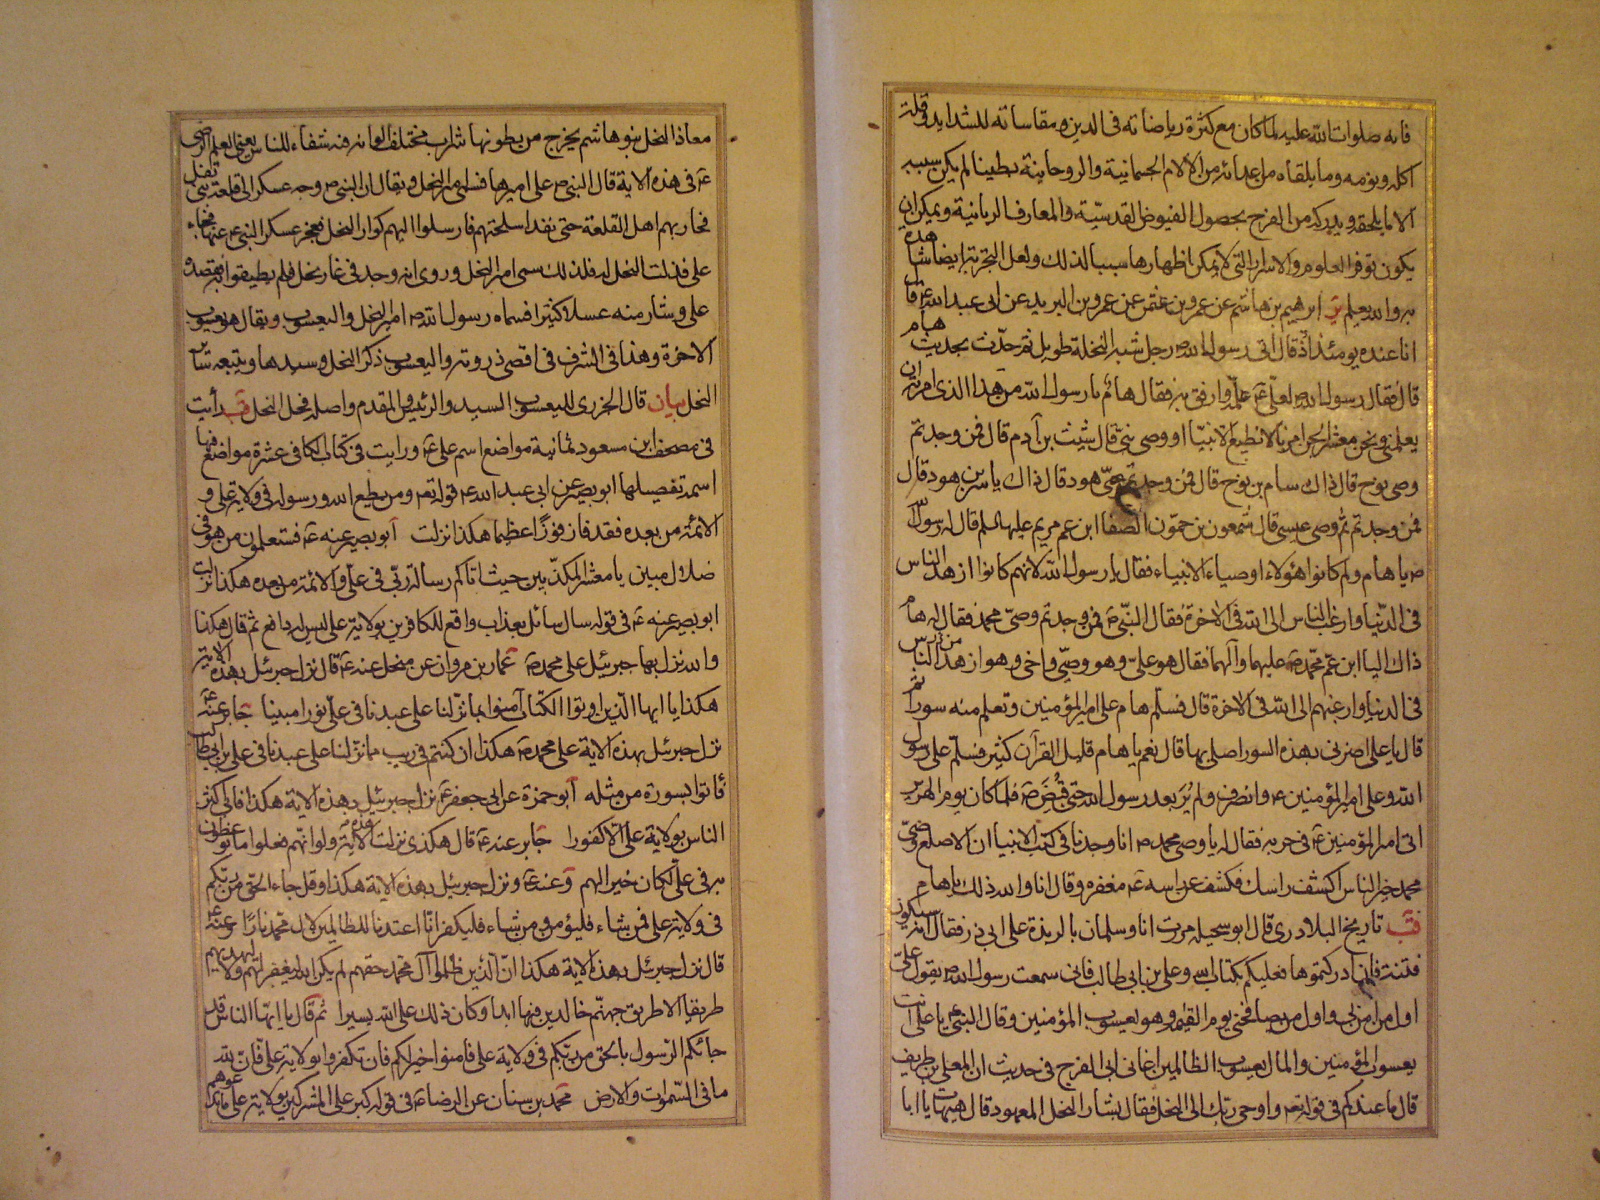 فانه صلوات الله عليه لما كان مع كثرة رياضاته فى الدين ومقاساته للشدايد وقلة
اكله ونومه وما يلقاه من اعدائه من الآلام الجسمانية والروحانية بطينا لم يكن سببه
الا ما يلحقه ويدركه من الفرح بحصول الفيوض القدسية والمعارف الربانية ويمكن ان
يكون توفر العلوم والاسرار التى لا يمكن اظهارها سببا لذلك ولعل التجربة ايضا شاهدة
به والله يعلم ير ابرهيم بن هاشم عن عمرو بن عثمن عن عمرو بن البريد عن ابى عبد الله ع قال
انا عنده يومئذ اذ قال اتى رسول الله ص رجل شبه النخلة طويل ثم حدث بحديث هام
قال فقال رسول الله ص لعلى ع علمه وارفق به فقال هام يا رسول الله من هذا الذى امرته ان
يعلمنى ونحن معشر الجن امرنا لا نطيع الا نبيا او وصى نبى قال شيث بن آدم قال فمن وجدتم
وصى نوح قال ذاك سام بن نوح قال فمن وجدتم وصى هود قال ذاك ياسر بن هود قال
فمن وجدتم ثم وصى عيسى قال شمعون بن حمون الصفا ابن عم مريم عليها السلم قال له رسول الله
ص يا هام ولم كانوا هؤلاء اوصياء الانبياء فقال يا رسول الله لانهم كانوا ازهد الناس
فى الدنيا وارغب الناس الى الله فى الآخرة فقال النبى ص فمن وجدتم وصى محمد فقال له هام
ذاك اليا ابن عم محمد ص عليهما وآلهما فقال هو على وهو وصيى واخى وهو ازهد الناس
فى الدنيا وارغبهم الى الله فى الآخرة قال فسلم هام على امير المؤمنين وتعلم منه سورا ثم
قال يا على اخبرنى بهذه السور اصلى بها قال نعم يا هام قليل القرآن كثير فسلم على رسول
الله وعلى امير المؤمنين ع وانصرف ولم يُرَ بعد رسول الله حتى قُبِضَ ص فلما كان يوم الهرير
اتى امير المؤمنين ع فى حربه فقال له يا وصى محمد ص انا وجدنا فى كتب الانبيا ان الاصلع وصى
محمد خير الناس اكشف راسك فكشف عن راسه ع مغفره وقال انا والله ذلك يا هام
قب تاريخ البلادرى قال ابو سحيله مررت انا وسلمان بالربذة على ابى ذر فقال انه سيكون
فتنة فان ادركتموها فعليكم بكتاب الله وعلى بن ابى طالب فانى سمعت رسول الله ص يقول على
اول من آمن بى واول من يصافحنى يوم القيمة وهو يعسوب المؤمنين وقال النبى ص يا على انت
يعسوب المؤمنين والمال يعسوب الظالمين اغانى ابى الفرج فى حديث ان المعلى بن طريف
قال ما عندكم فى قوله تعه واوحى ربك الى النحل فقال بشار النحل المعهود قال هيهات يا ابا
معاذ النحل بنو هاشم يخرج من بطونها شراب مختلف الوانه فيه شفاء للناس يعنى العلم الرضى
ع فى هذه الآية قال النبى ص على اميرها فسمى امير النحل ويقال ان النبى ص وجه عسكرا الى قلعة بنى ثعل
فحاربهم اهل القلعة حتى نفد اسلحتهم فارسلوا اليهم كوار النحل فعجز عسكر النبى ص عنها فجاء
على فذلت النحل له فلذلك سمى امير النحل وروى انه وجد فى غار نحل فلم يطيقوا به فقصده
على وشار منه عسلا كثيرا فسماه رسول الله ص امير النحل واليعسوب ويقال هو يعسوب
الآخرة وهذا فى الشرف فى اقصى ذروته واليعسوب ذكر النحل وسيدها ويتبعه سائر
النحل بيان قال الجزرى لليعسوب السيد والرئيس والمقدم واصله فحل النحل قب رأيت
فى مصحف ابن مسعود ثمانية مواضع اسم على ع ورايت فى كتاب الكافى عشرة مواضع فيها
اسمه تفصيلها ابو بصير عن ابى عبد الله ع قوله تعه ومن يطع الله ورسوله فى ولاية على و
الائمة من بعده فقد فاز فوزًا عظيما هكذا نزلت ابو بصير عنه ع فستعلمون من هو فى
ضلال مبين يا معشر المكذبين حيث اتاكم رسالة ربى فى على والائمة من بعده هكذا نزلت
ابو بصير عنه ع فى قوله سال سائل بعذاب واقع للكافرين بولاية على ليس له دافع ثم قال هكذا
والله نزل بها جبرئيل على محمد ص عمار بن مروان عن منخل عنه ع قال نزل جبرئيل بهذه الآية
هكذا يا ايها الذين اوتوا الكتاب آمنوا بما نزلنا على عبدنا فى على نورا مبينا جابر عنه ع
نزل جبرئيل بهذه الآية على محمد ص هكذا ان كنتم فى ريب مما نزلنا على عبدنا فى على بن ابى طالب
فأتوا بسورة من مثله ابو حمزة عن ابى جعفر ع نزل جبرئيل بهذه الآية هكذا فابى اكثر
الناس بولاية على الا كفورا جابر عنه ع قال هكذى نزلت هذه الآية ولو انهم فعلوا ما يوعظون
به فى على لكان خيرا لهم وعنه ع ونزل جبرئيل بهذه الآية هكذا وقل جاء الحق من ربكم
فى ولاية على فمن شاء فليؤمن ومن شاء فليكفر انا اعتدنا للظالمين لآل محمد نارًا وعنه ع
قال نزل جبرئيل بهذه الآية هكذا ان الذين ظلموا آل محمد حقهم لم يكن الله ليغفر لهم ولا ليهديهم
طريقا الا طريق جهنم خالدين فيها ابدا وكان ذلك على الله يسيرا ثم قال يا ايها الناس قد
جائكم الرسول بالحق من ربكم فى ولاية على فامنوا خيرا لكم فان تكفروا بولاية على فان لله
ما فى السموات والارض محمد بن سنان عن الرضا ع فى قوله كبر على المشركين بولاية على ما تدعوهم